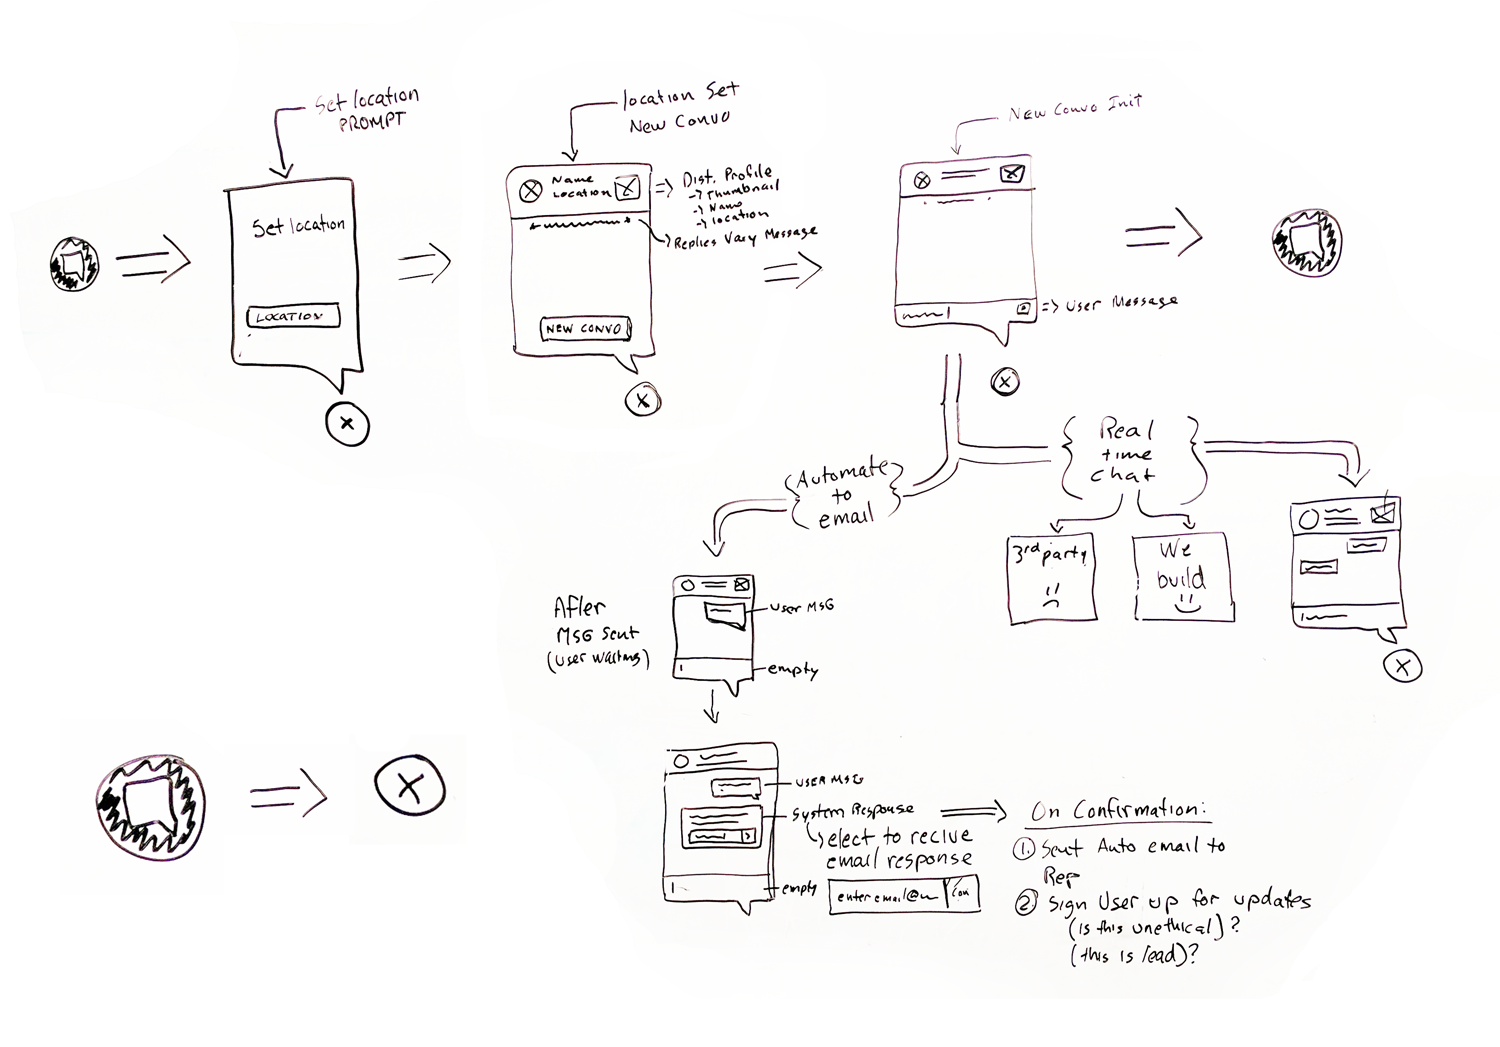 Set location
PROMPT
Set location
LOCATION
location Set
New Convo
Name
Location
Dist. Profile
Thumbnail
Name
location
Replies Vary Message
NEW CONVO
New Convo Init
User Message
Automate
to
email
Real
time
chat
3rd party
We
build
After
MSG Sent
(User Waiting)
User MSG
empty
USER MSG
System Response
elect to recive
email response
empty
enter email@
Con
On Confirmation:
1. Sent Auto email to
Rep
2. Sign User up for updates
(is this unethical)?
(this is lead)?